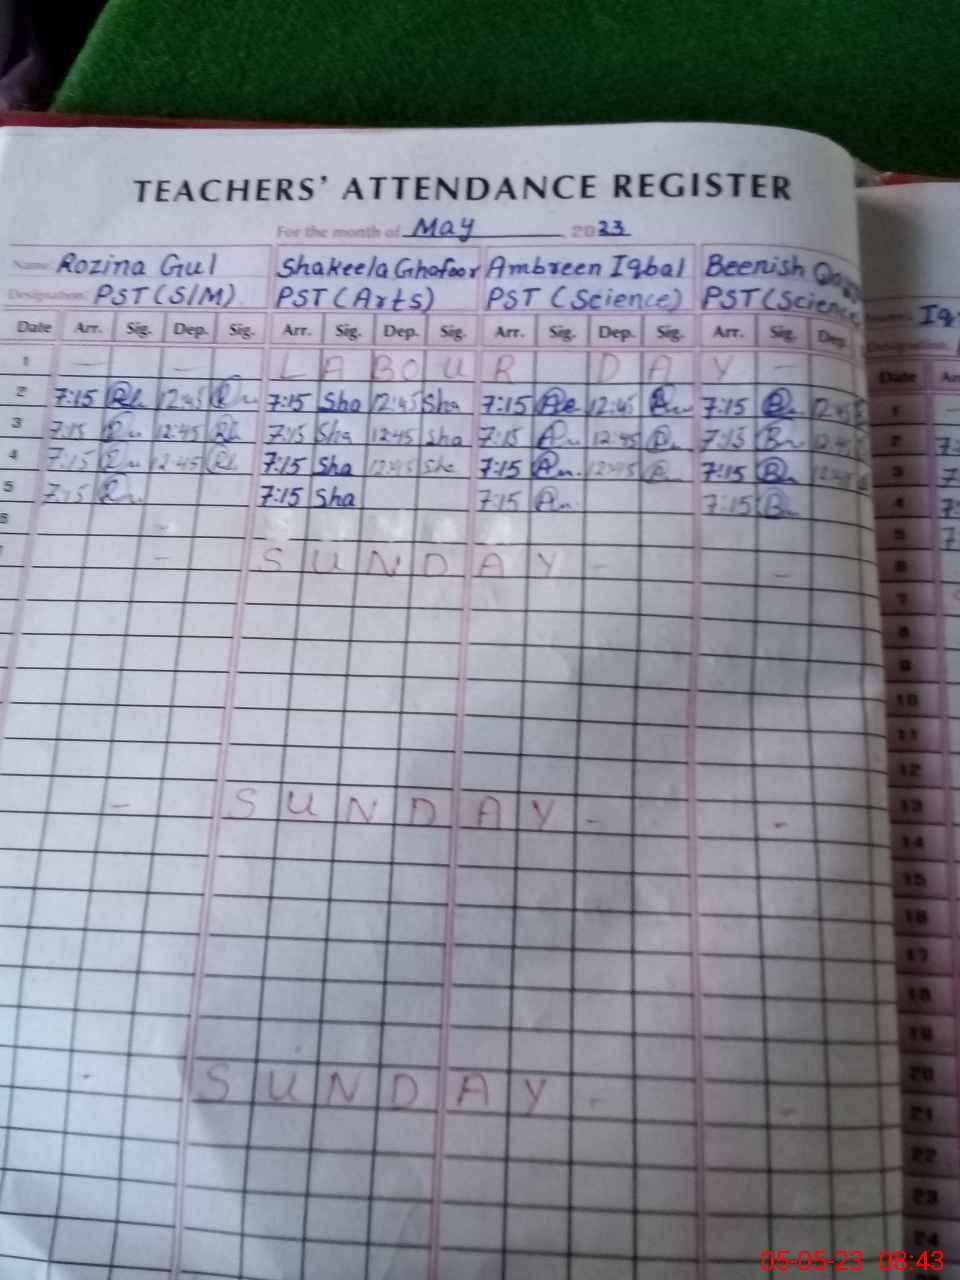 TEACHERS' ATTENDANCE REGISTER
For the month of May 2023
Name: Rozina Gul Shakeela Ghafoor Ambreen Iqbal Beenish
Designation: PST (S/M) PST (Arts) PST (Science) PST (Science
Date Arr. Sig. Dep. Sig. Arr. Sig. Dep. Sig. Arr. Sig. Dep. Sig. Arr. Sig. Dep.
1 — — LABOUR DAY -
2 7:15 12:45 7:15 Sha 12:45 Sha 7:15 12:45 7:15
3 7:15 12:45 7:15 Sha 12:45 Sha 7:15 12:45 7:15 12:45
4 7:15 12:45 7:15 Sha 12:45 Sha 7:15 12:45 7:15 12:45
5 7:15 7:15 Sha 7:15 7:15
6
- SUNDAY - -
- SUNDAY - -
- SUNDAY - -
Designation:
Date
1
2
3
4
5
6
7
8
9
10
11
12
13
14
15
16
17
18
19
20
21
22
23
24
05-05-23 08:43